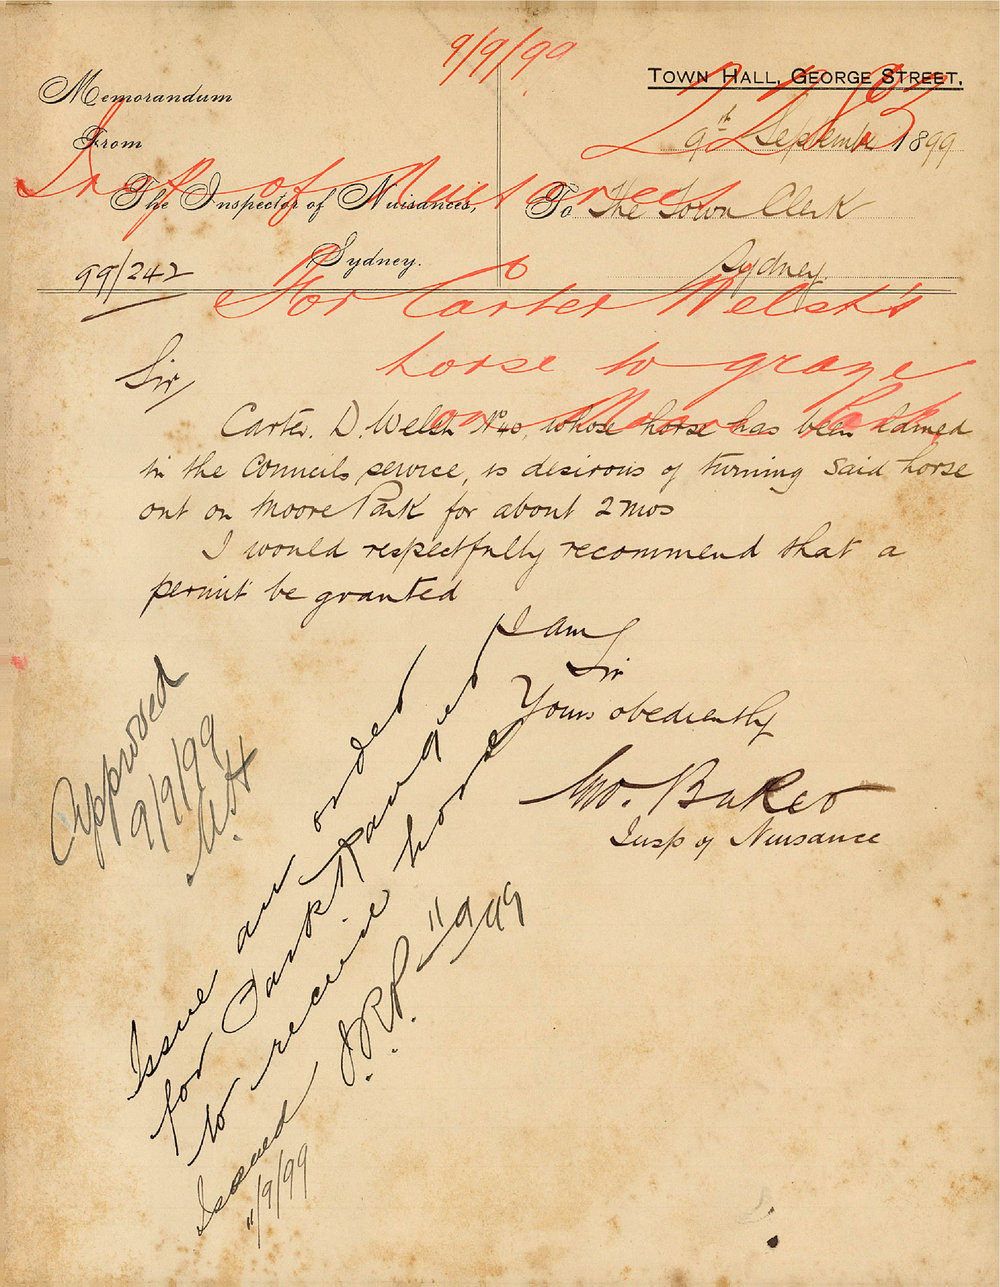 9/9/99
TOWN HALL, GEORGE STREET,
2283
Memorandum
From
9th September 1899
Insp of Nuisances
The Inspector of Nuisances,
To The Town Clerk
Sydney.
Sydney.
99/242
For Carter Welsh's
horse to graze
on Moore Park
Sir,
Carter. D. Welsh No 40, whose horse has been lamed
in the Councils service, is desirous of turning said horse
out on Moore Park for about 2 mos
I would respectfully recommend that a
permit be granted
I am
Sir
Yours obediently
Geo. Baker
Insp of Nuisance
Approved
9/9/99
Issue an order
for Park Ranger
to receive horse
J.R.P. 11/9/99
Issued
11/9/99